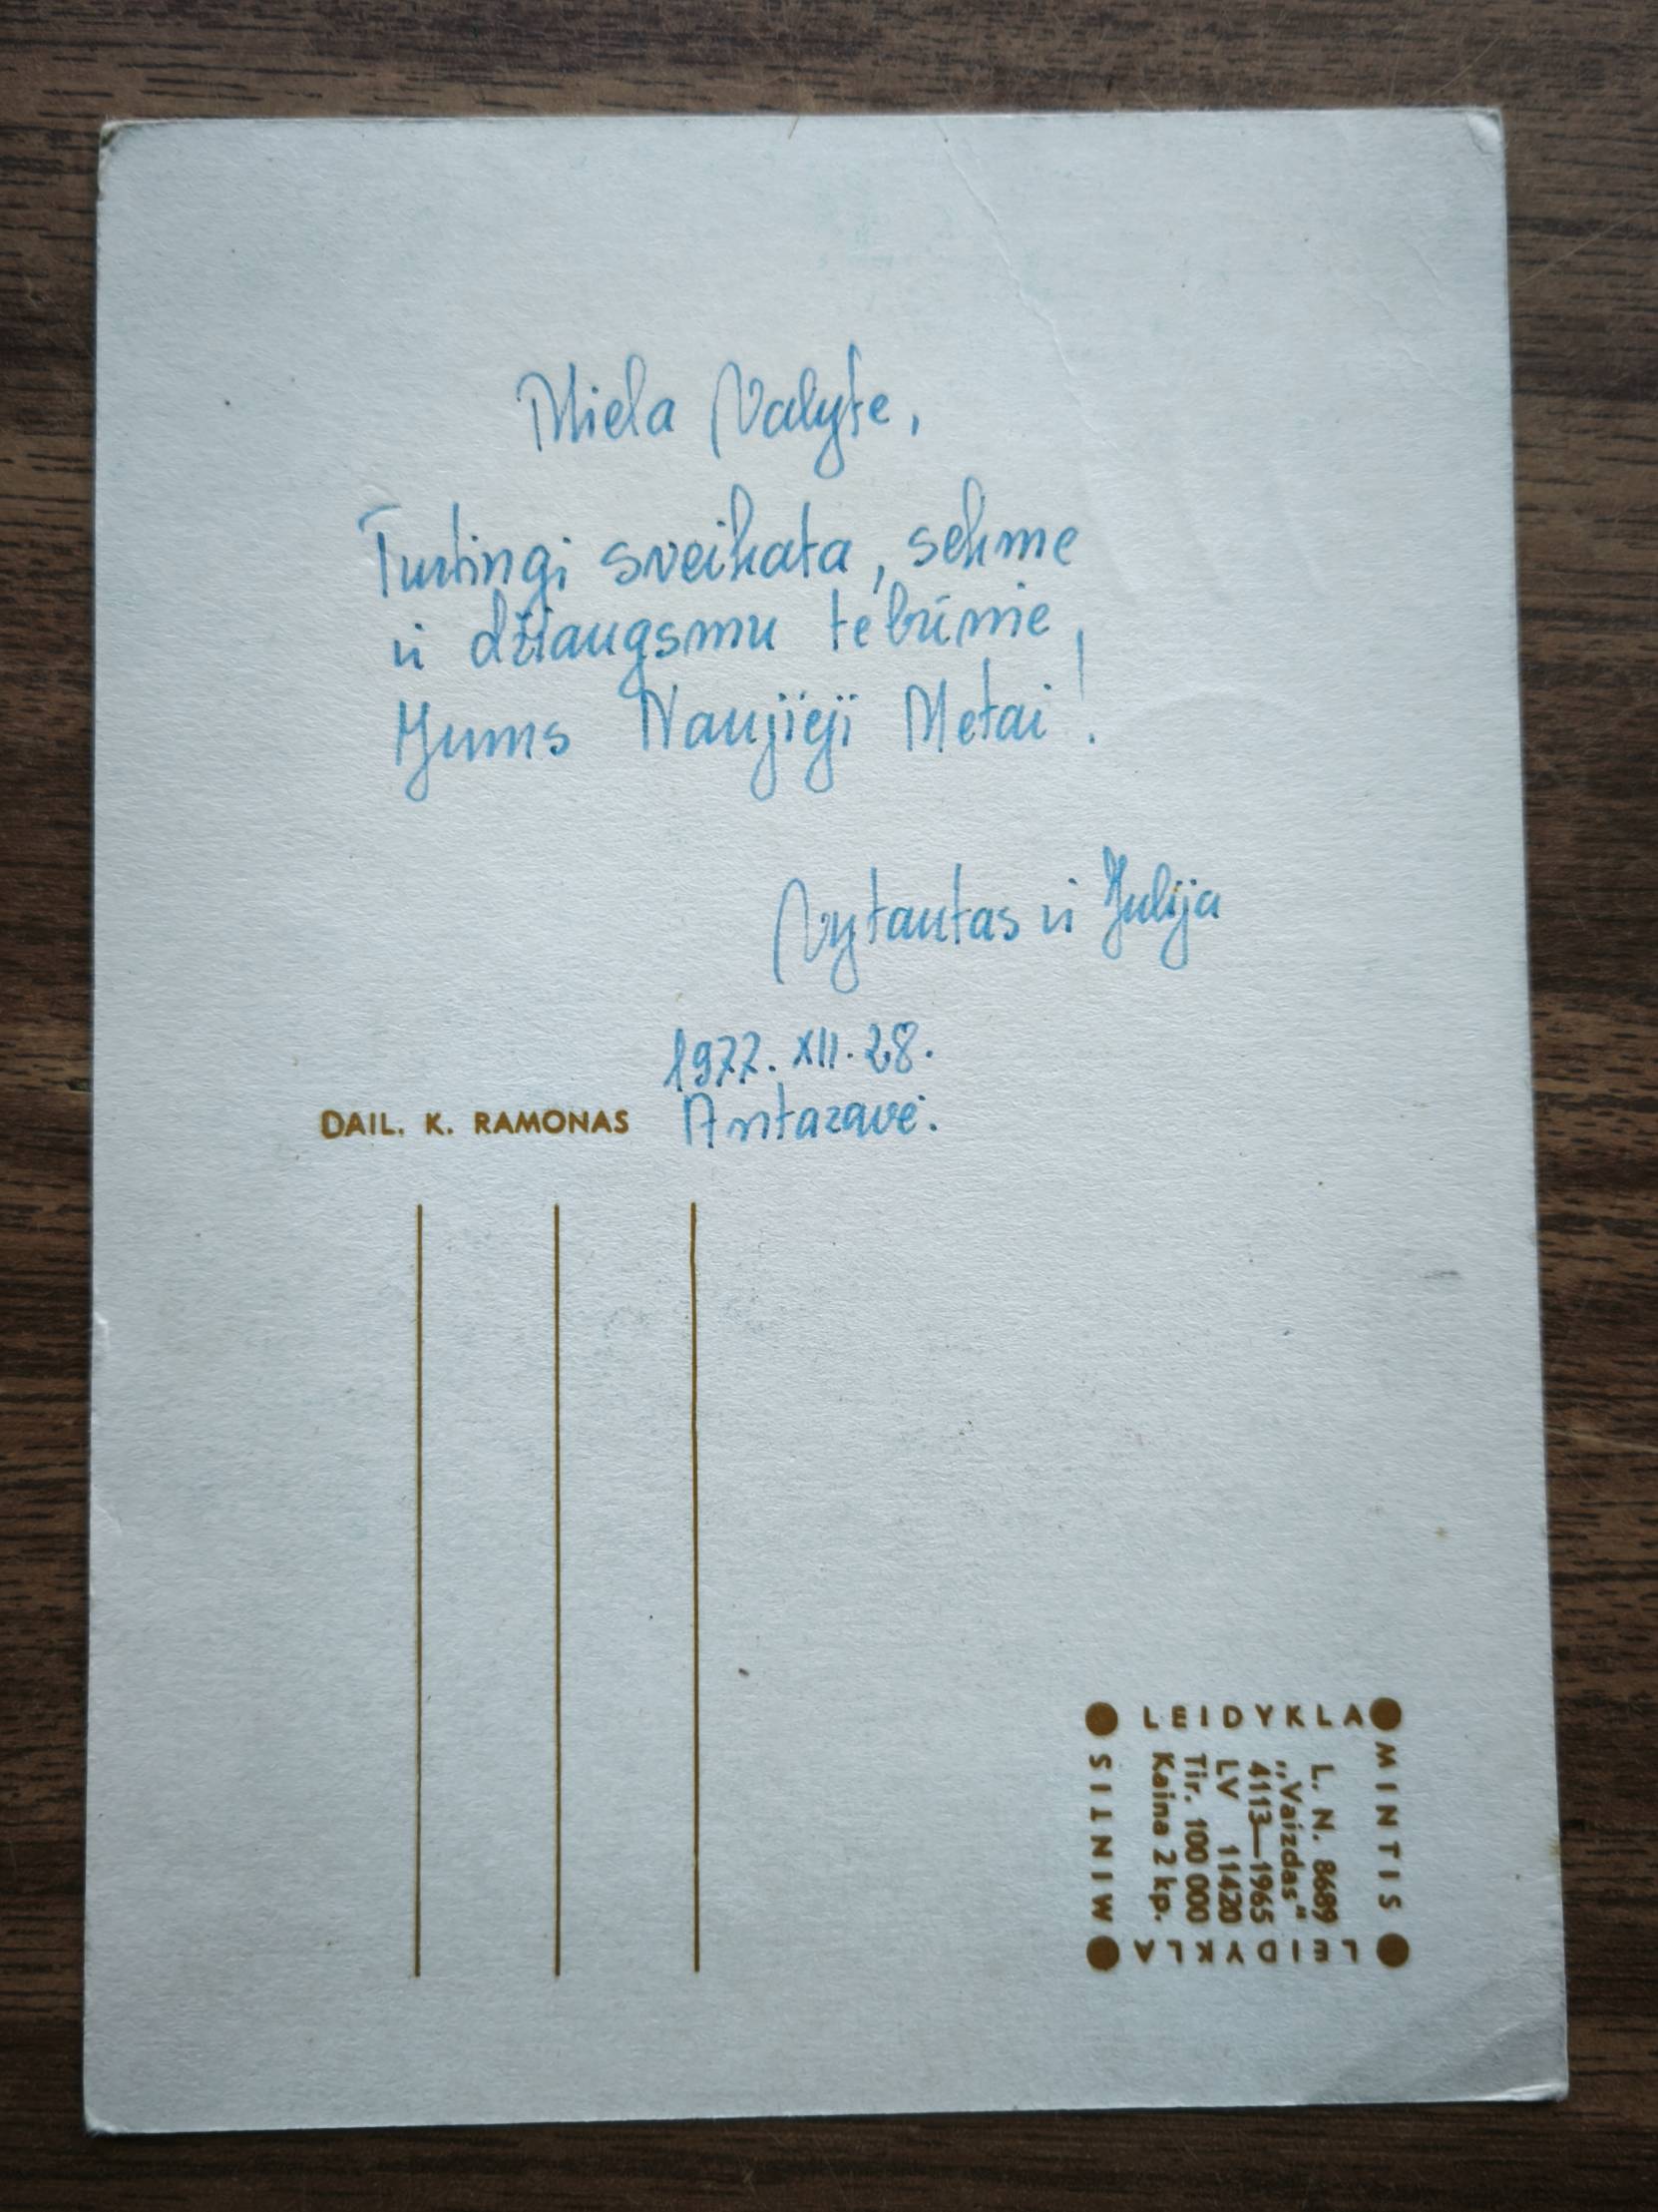 Miela Valyte,
Turtingi sveikata, sekme
ir džiaugsmu tebūnie
Jums Naujieji Metai!
Vytautas ir Julija
1977. XII. 28.
Antazavė.
DAIL. K. RAMONAS
LEIDYKLA
MINTIS
LEIDYKLA
MINTIS
L. N. 8689
„Vaizdas"
4113—1965
LV 11420
Tir. 100 000
Kaina 2 kp.